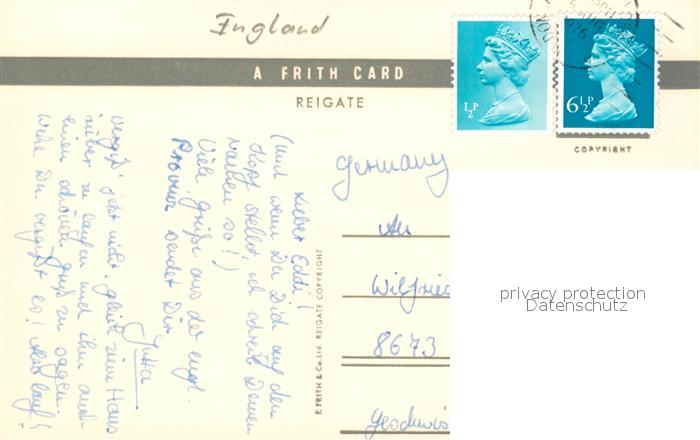 England
½P
6½P
A FRITH CARD
REIGATE
COPYRIGHT
Germany
An
Wilfried
8673
Geschwis
privacy protection
Datenschutz
F. FRITH & Co. Ltd. REIGATE COPYRIGHT
Lieber Eddi!
(und wenn Du Dich auf den
Kopf stellst, ich schreib Deinen
Namen so!)
Viele Grüße aus der engl.
Provinz sendet Dir
Jutta
vergiß jetzt nicht, gleich zum Haus
rüber zu laufen und ihm auch
einen schönen Gruß zu sagen.
Wehe Du vergißt es! Also lauf!